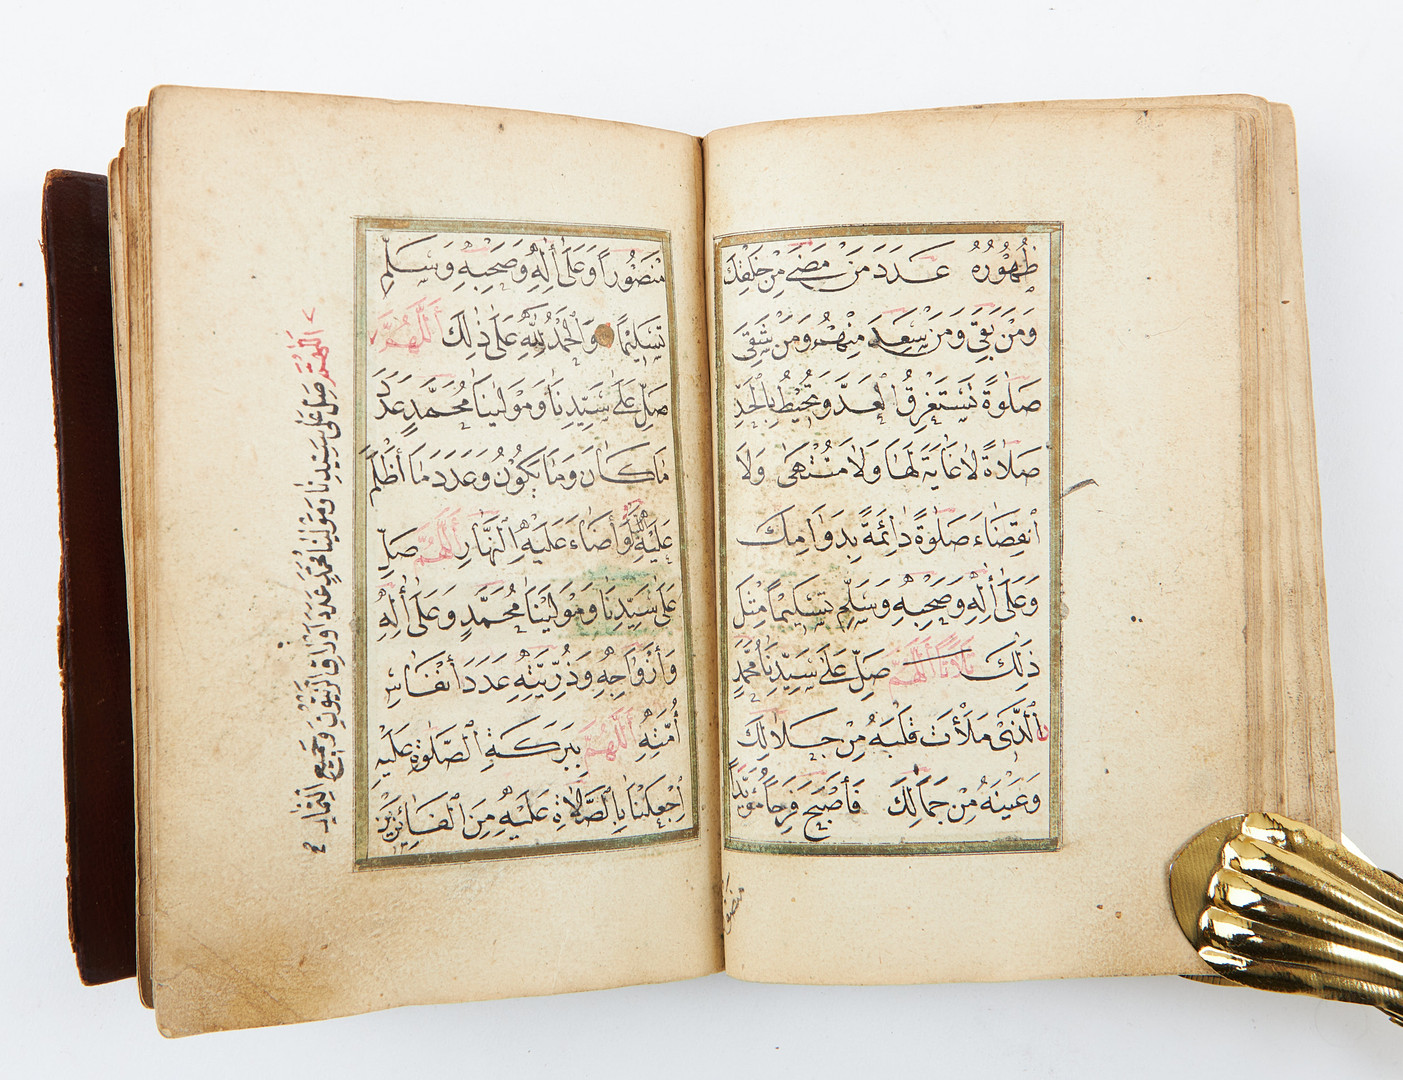 ظُهُورُهُ عَدَدَ مَنْ مَضٰى مِنْ خَلْقِكَ
وَمَنْ بَقِىَ وَمَنْ سَعِدَ مِنْهُمْ وَمَنْ شَقِىَ
صَلٰوةً تَسْتَغْرِقُ الْعَدَّ وَتُحِيطُ بِالْحَدِّ
صَلَاةً لَا غَايَةَ لَهَا وَلَا مُنْتَهٰى وَلَا
انْقِضَاءَ صَلٰوةً دَائِمَةً بِدَوَامِكَ
وَعَلٰى أٰلِهِ وَصَحْبِهِ وَسَلِّمْ تَسْلِيمًا مِثْلَ
ذٰلِكَ ثلاثا اَللّٰهُمَّ صَلِّ عَلٰى سَيِّدِنَا مُحَمَّدٍ
الَّذِى مَلَأْتَ قَلْبَهُ مِنْ جَلَالِكَ
وَعَيْنَهُ مِنْ جَمَالِكَ فَأَصْبَحَ فَرِحًا مُؤَيَّدًا
منصورا
مَنْصُورًا وَعَلٰى أٰلِهِ وَصَحْبِهِ وَسَلِّمْ
تَسْلِيمًا وَالْحَمْدُ لِلّٰهِ عَلٰى ذٰلِكَ اَللّٰهُمَّ
صَلِّ عَلٰى سَيِّدِنَا وَمَوْلٰينَا مُحَمَّدٍ عَدَدَ
مَا كَانَ وَمَا يَكُونُ وَعَدَدَ مَا أَظْلَمَ
عَلَيْهِ الَّيْلُ وَأَضَاءَ عَلَيْهِ النَّهَارِ اَللّٰهُمَّ صَلِّ
عَلٰى سَيِّدِنَا وَمَوْلٰينَا مُحَمَّدٍ وَعَلٰى أٰلِهِ
وَأَزْوَاجِهِ وَذُرِّيَّتِهِ عَدَدَ أَنْفَاسِ
أُمَّتِهِ اَللّٰهُمَّ بِبَرَكَةِ الصَّلٰوةِ عَلَيْهِ
اِجْعَلْنَا بِالصَّلَاةِ عَلَيْهِ مِنَ الْفَائِزِينَ
اَللّٰهُمَّ صَلِّ عَلٰى سَيِّدِنَا وَمَوْلٰينَا مُحَمَّدٍ عَدَدَ اَوْرَاقِ الزَّيْتُونِ وَجَمِيعِ الثِّمَارِ